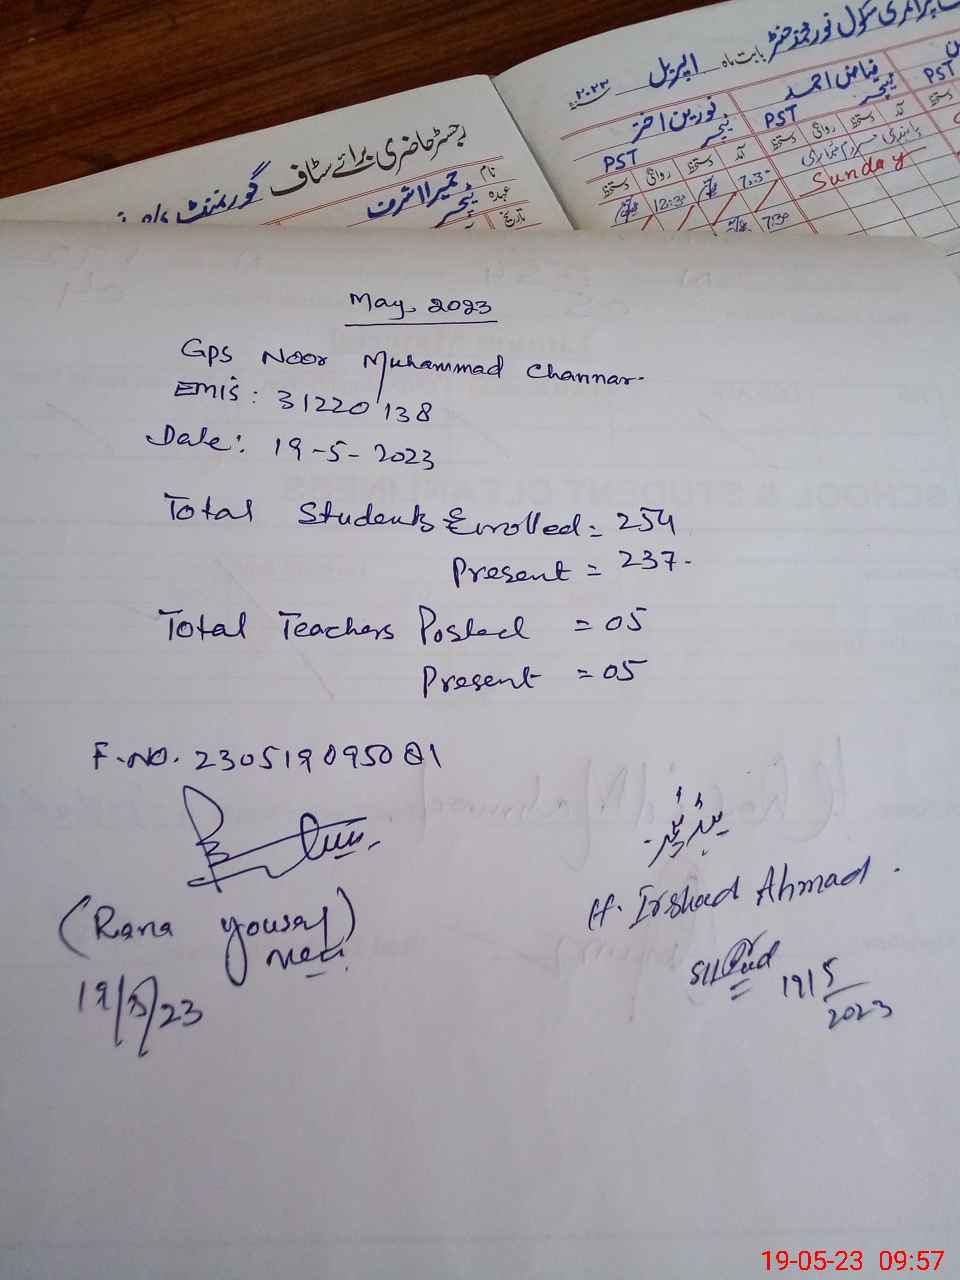 رجسٹر حاضری برائے سٹاف گورنمنٹ
نام حمیرا اشرف
عہدہ ٹیچر
تاریخ
پرائمری سکول نور محمد چنڑ بابت ماہ اپریل ۲۰۲۳
نورین اختر فیاض احمد
ٹیچر ٹیچر
PST PST PST
دستخط روانگی دستخط آمد دستخط روانگی دستخط آمد
12:30 7:30
Sunday
7:30
May. 2023
Gps Noor Muhammad Channar.
EMIS: 31220138
Date: 19-5-2023
Total Students Enrolled = 254
Present = 237.
Total Teachers Posted = 05
Present = 05
F.NO. 230519095081
ہیڈ ٹیچر
(Rana Yousaf)
H. Irshad Ahmad.
mea
19/5/23
19/5/2023
19-05-23 09:57